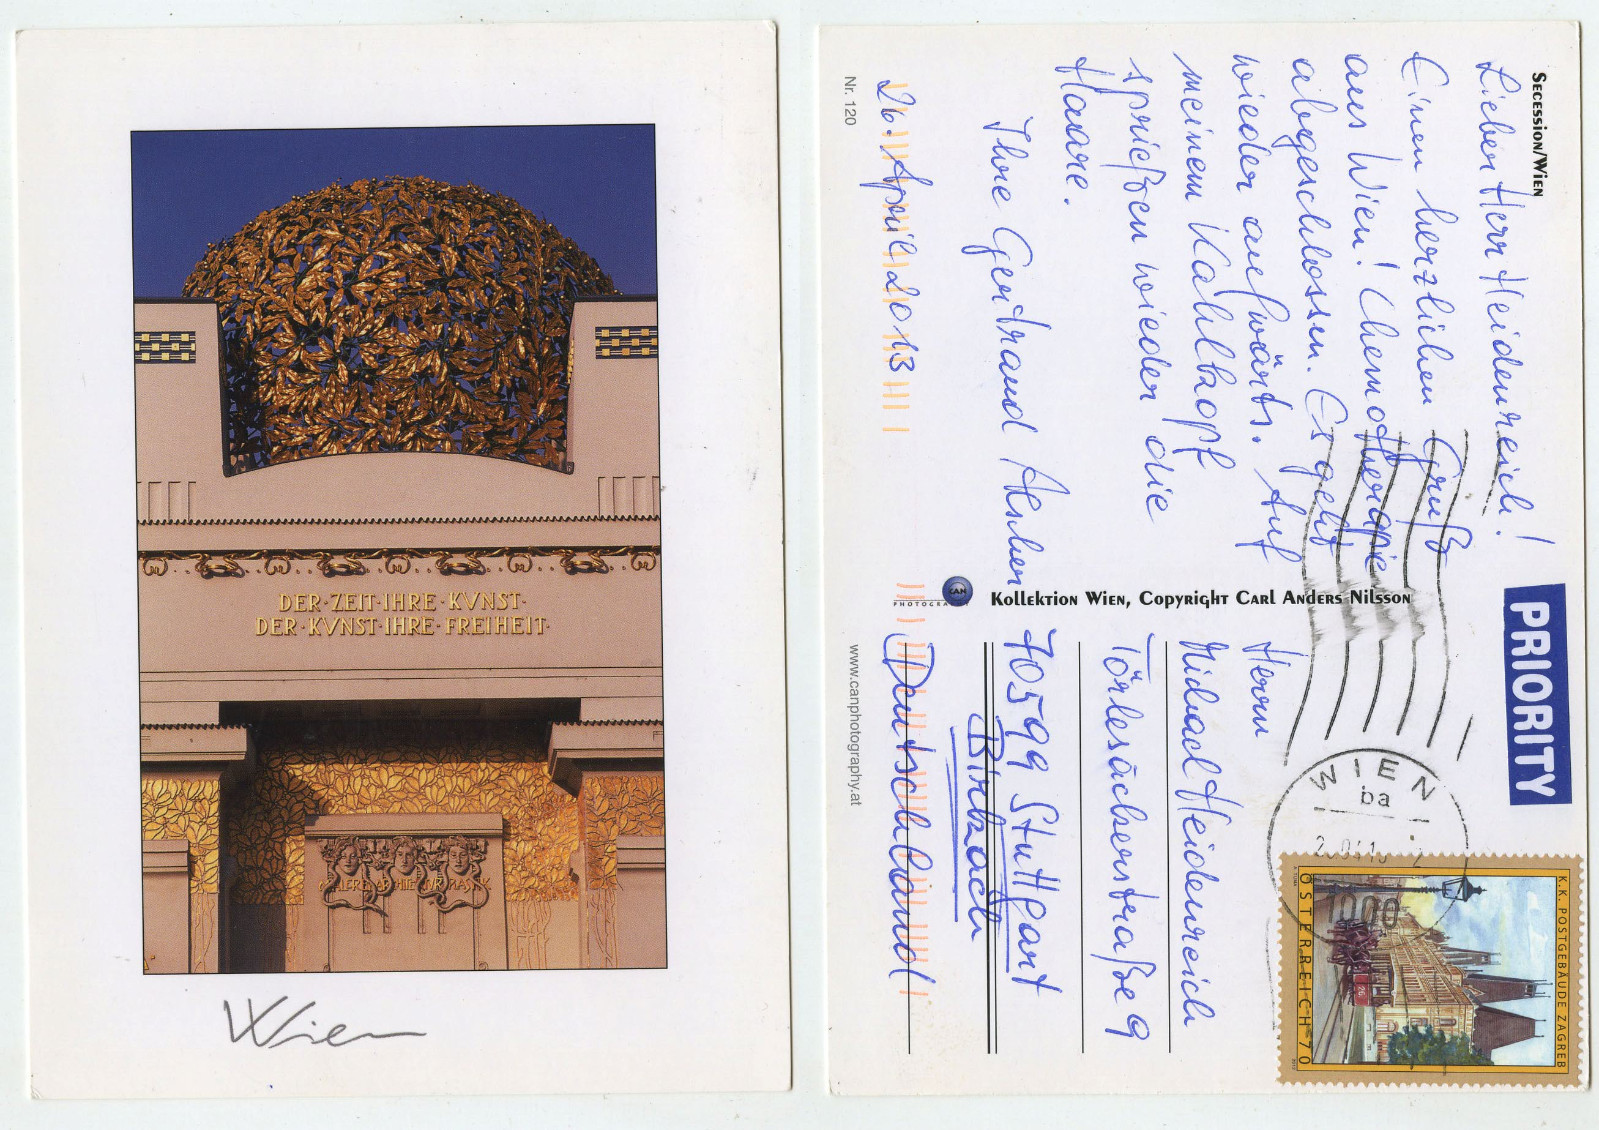 DER·ZEIT·IHRE·KVNST·
DER·KVNST·IHRE·FREIHEIT·
Wien
SECESSION/WIEN
Lieber Herr Heidenreich!
Einen herzlichen Gruß
aus Wien! Chemotherapie
abgeschlossen. Es geht
wieder aufwärts. Auf
meinem Kahlkopf
sprießen wieder die
Haare.
Ihre Gertraud
26. April 2013
Nr. 120
KOLLEKTION WIEN, COPYRIGHT CARL ANDERS NILSSON
CAN
PHOTOGRAPHY
www.canphotography.at
PRIORITY
WIEN
ba
K.K. POSTGEBÄUDE ZAGREB
ÖSTERREICH 70
26
Herrn
Michael Heidenreich
Törlesäckerstraße 9
70599 Stuttgart
Birkach
Deutschland